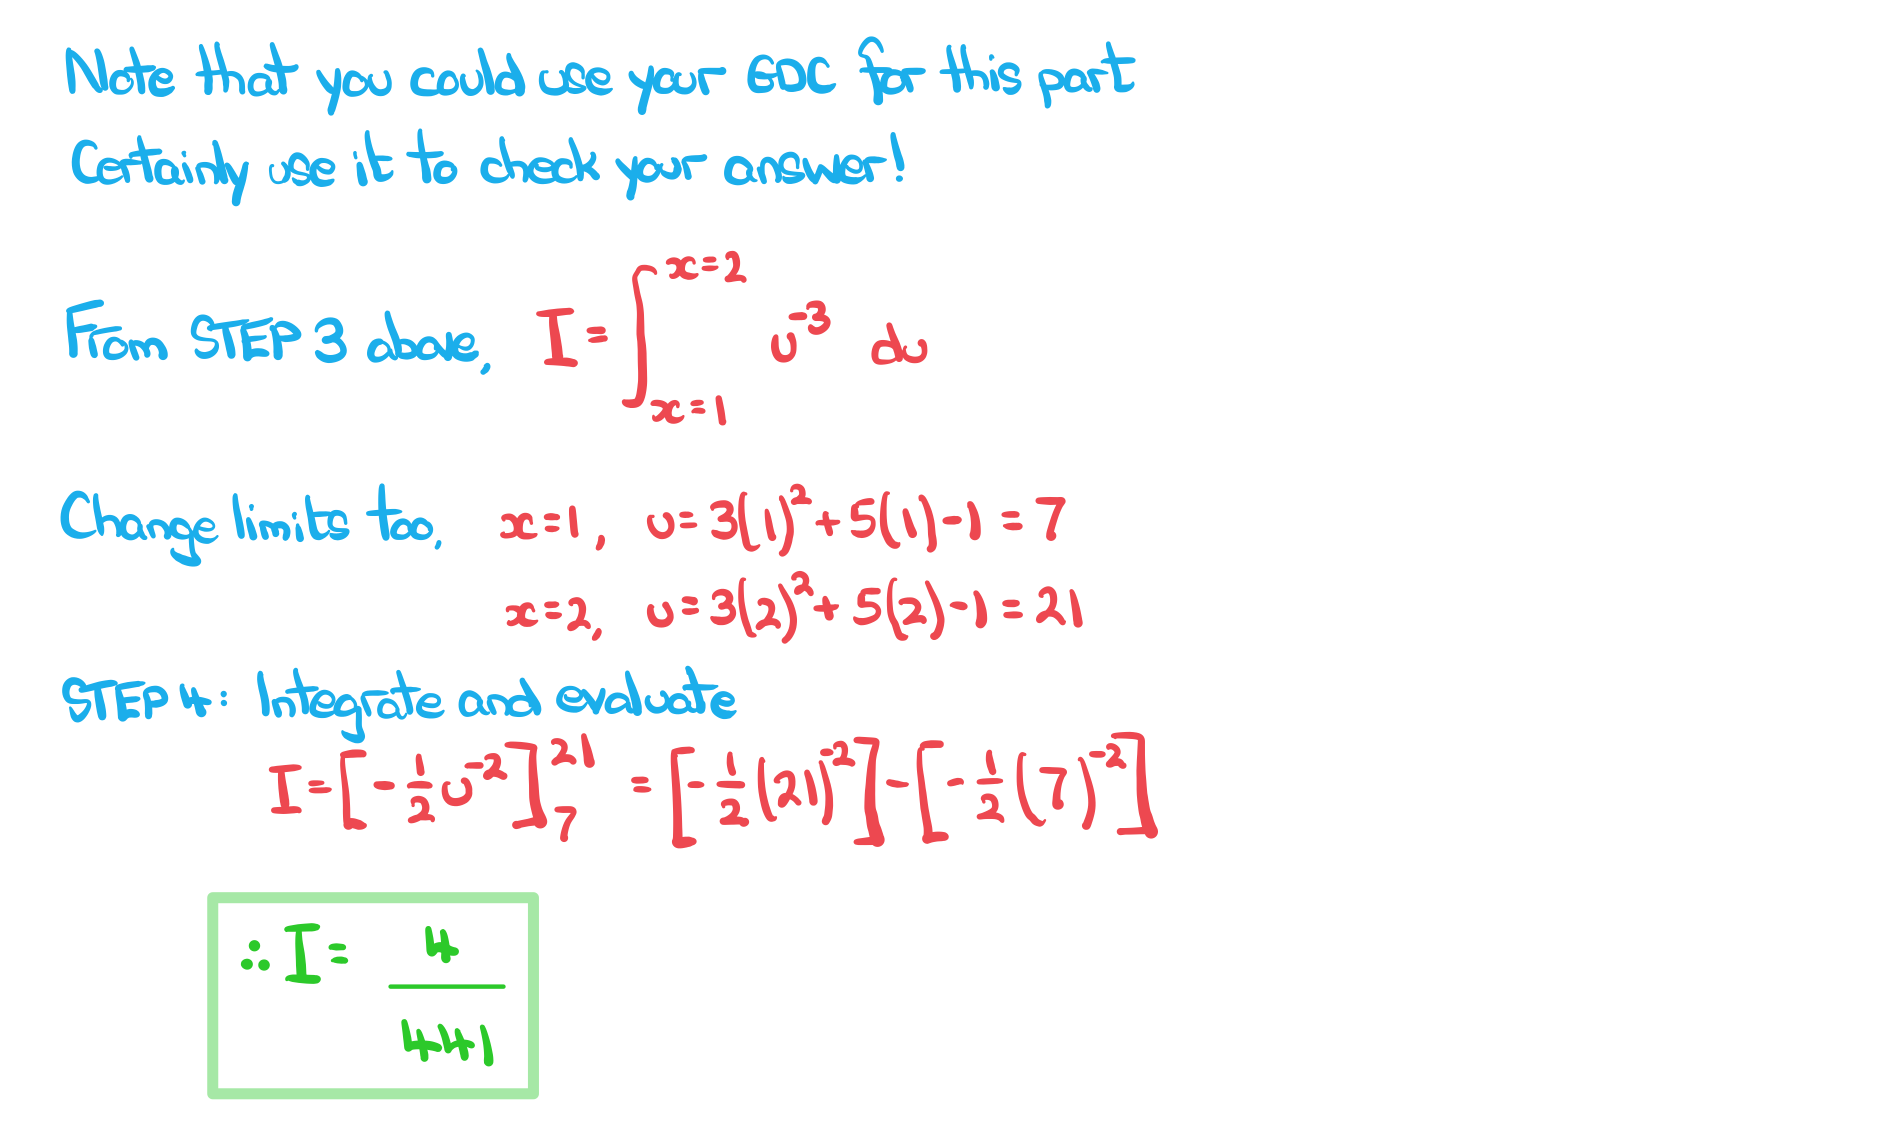 Note that you could use your GDC for this part
Certainly use it to check your answer!
From STEP 3 above, I = ∫_{x=1}^{x=2} u^{-3} du
Change limits too, x=1, u=3(1)^2+5(1)-1=7
x=2, u=3(2)^2+5(2)-1=21
STEP 4: Integrate and evaluate
I=[-\frac{1}{2}u^{-2}]_{7}^{21} = [-\frac{1}{2}(21)^{-2}]-[-\frac{1}{2}(7)^{-2}]
∴ I= \frac{4}{441}